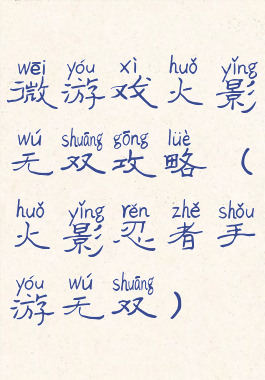 wēi yóu xì huǒ yǐng
微游戏火影
wú shuāng gōng lüè
无双攻略（
huǒ yǐng rěn zhě shǒu
火影忍者手
yóu wú shuāng
游无双）